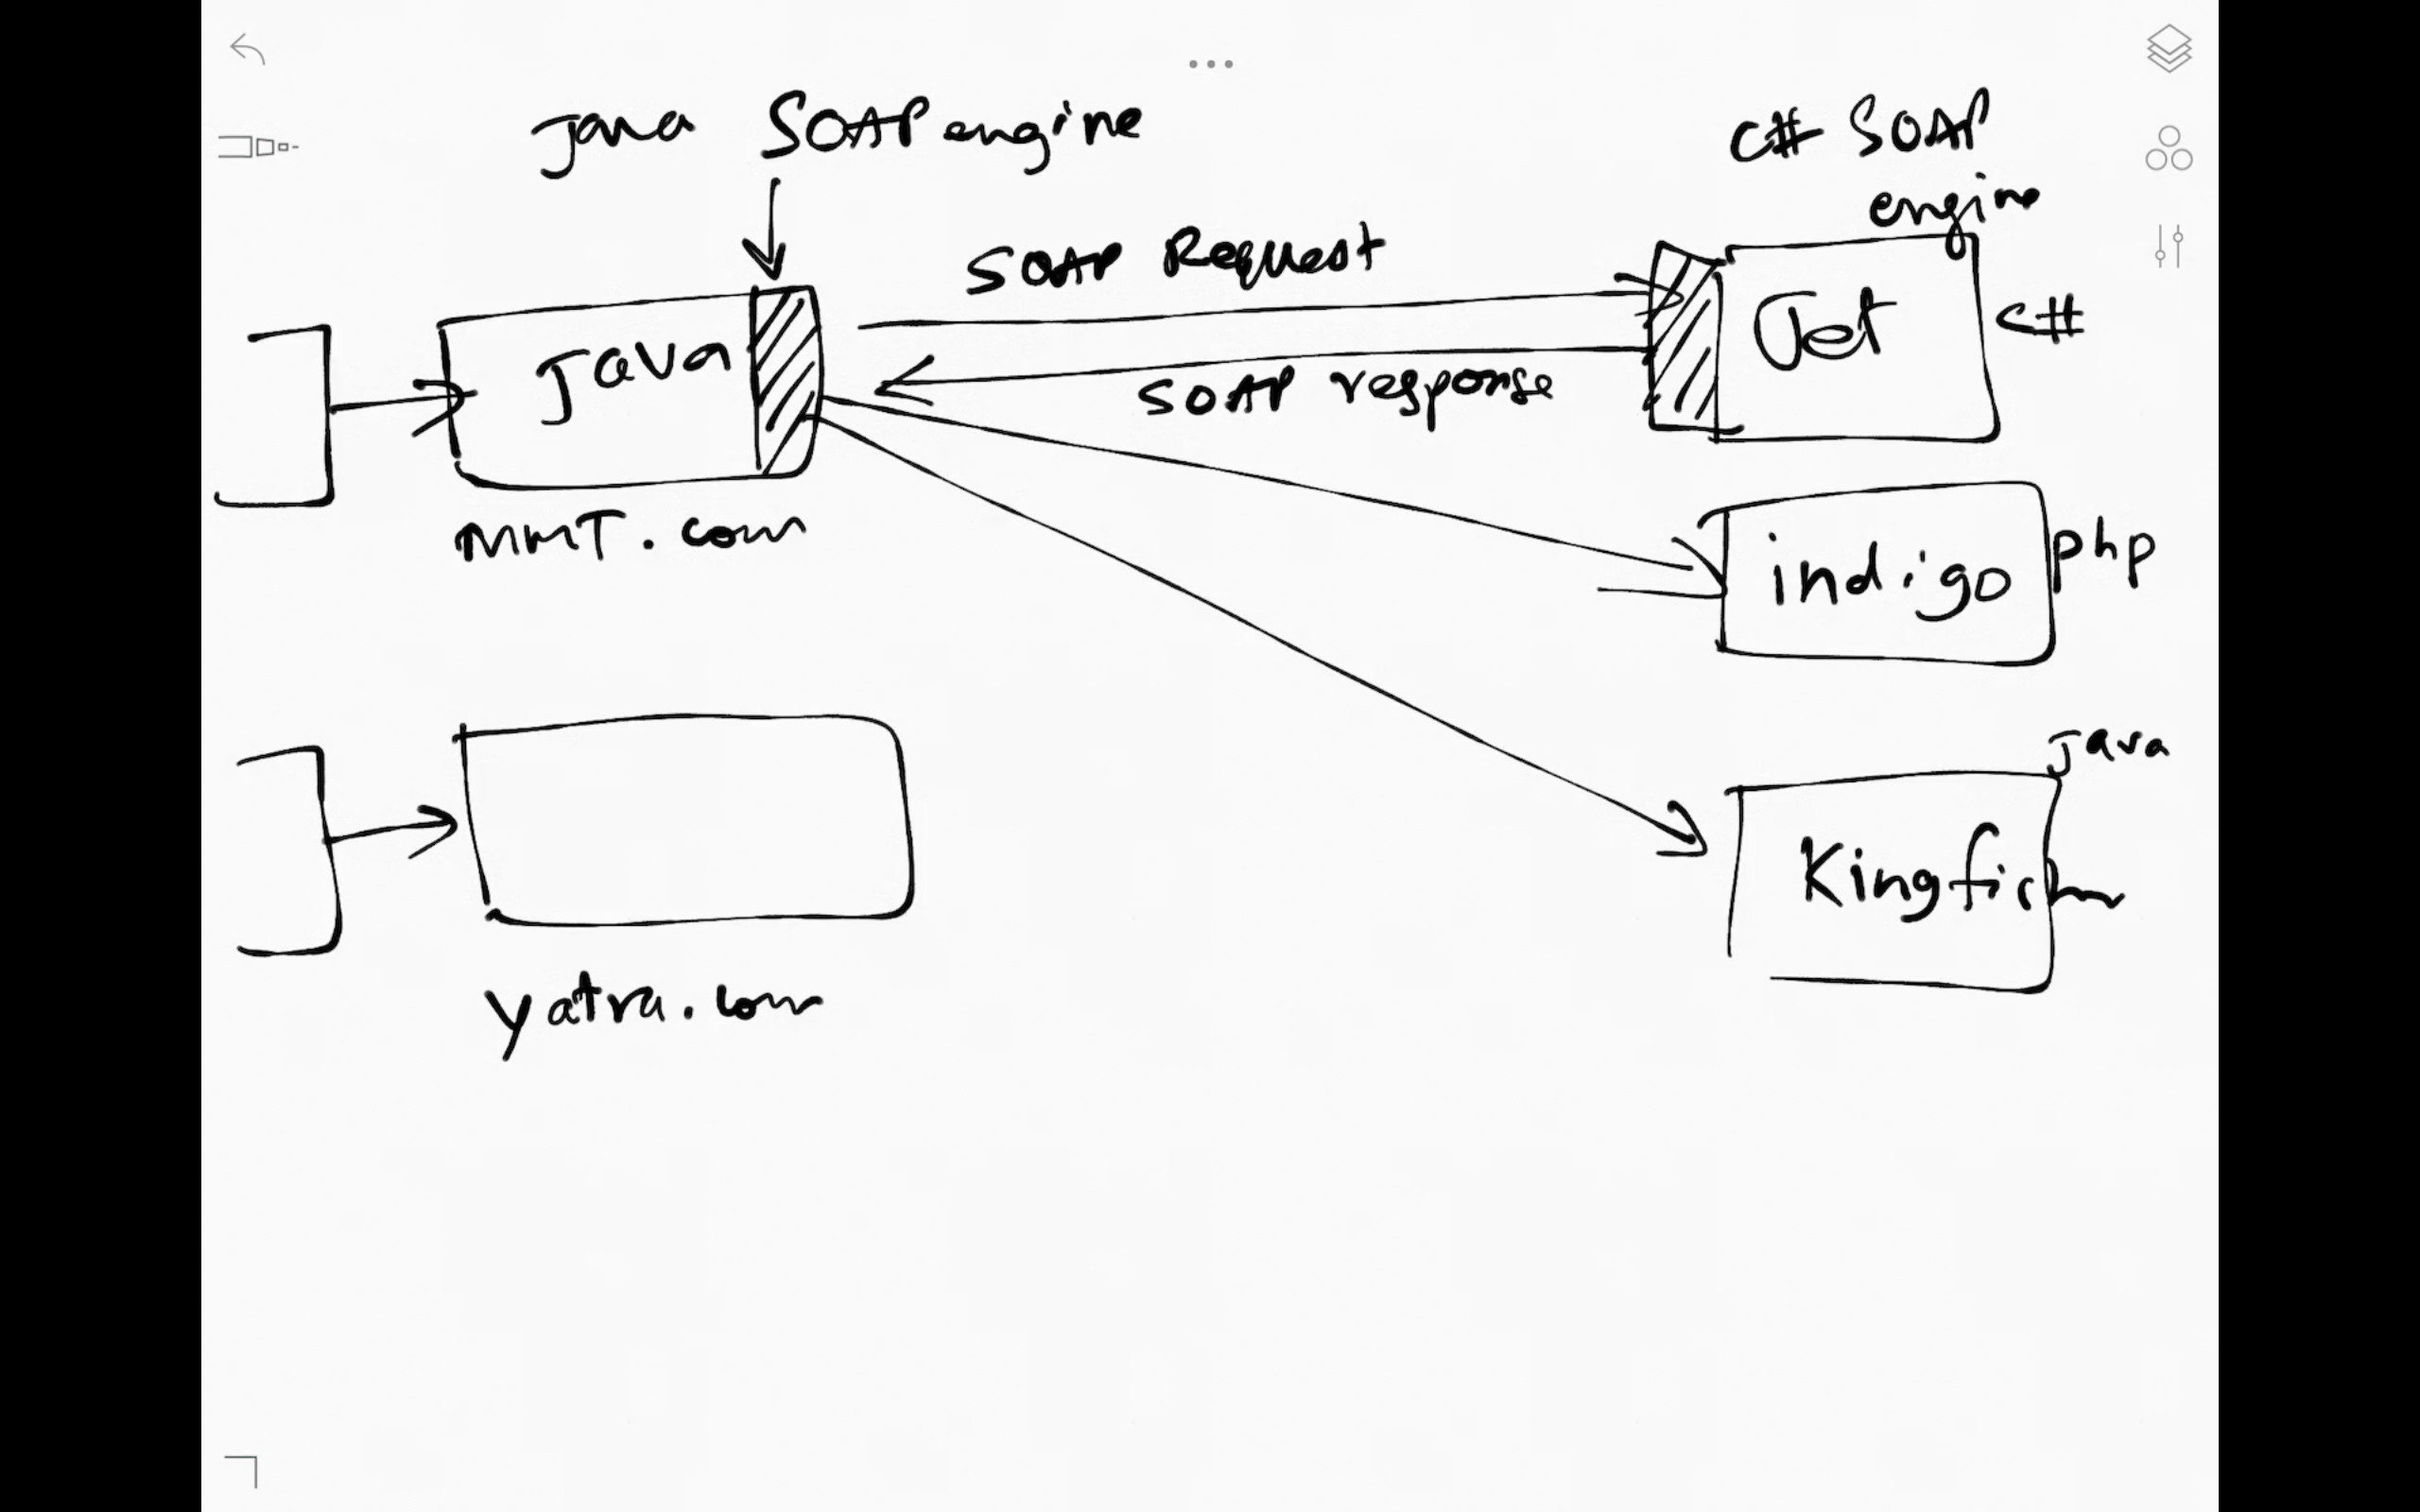 java SOAP engine
C# SOAP
engine
SOAP Request
java
Jet
C#
SOAP response
MMT.com
indigo
php
java
Kingfisher
yatra.com